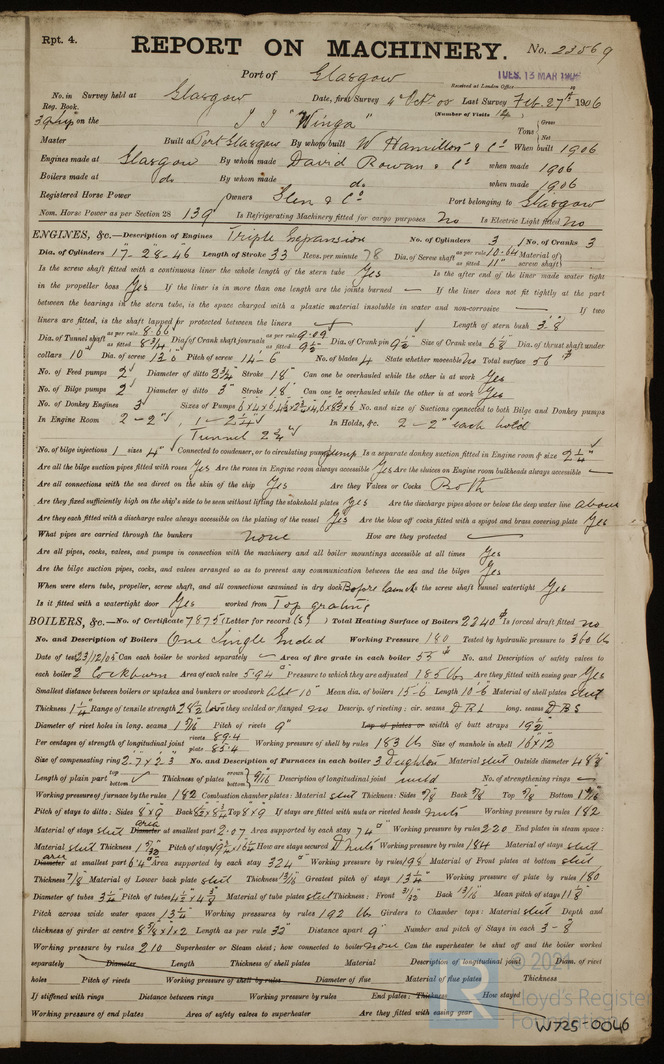 Rpt. 4.
REPORT ON MACHINERY. No. 23569
Port of Glasgow
TUES. 13 MAR 1906
Received at London Office
No. in Survey held at Glasgow Date, first Survey 4th Oct. 05 Last Survey Feb. 27th 1906
Reg. Book.
(Number of Visits
on the "Winga" Tons Gross Net
Master Built at Port Glasgow By whom built W Hamilton & Co When built 1906
Engines made at Glasgow By whom made David Rowan & Co when made 1906
Boilers made at do. By whom made do. when made 1906
Registered Horse Power Owners Glen & Co Port belonging to Glasgow
Nom. Horse Power as per Section 28 139 Is Refrigerating Machinery fitted for cargo purposes No Is Electric Light fitted No
ENGINES, &c.—Description of Engines Triple Expansion No. of Cylinders 3 No. of Cranks 3
Dia. of Cylinders 17-28-46 Length of Stroke 33 Revs. per minute 78 Dia. of Screw shaft as per rule 10.64 as fitted 11" Material of screw shaft
Is the screw shaft fitted with a continuous liner the whole length of the stern tube Yes Is the after end of the liner made water tight
in the propeller boss Yes If the liner is in more than one length are the joints burned — If the liner does not fit tightly at the part
between the bearings in the stern tube, is the space charged with a plastic material insoluble in water and non-corrosive — If two
liners are fitted, is the shaft lapped or protected between the liners Length of stern bush 3'.8"
Dia. of Tunnel shaft as per rule 8.66 as fitted 8 3/4 Dia. of Crank shaft journals as per rule 9.09 as fitted 9 1/2 Dia. of Crank pin 9 1/2 Size of Crank webs Dia. of thrust shaft under
collars 10 Dia. of screw 13.0 Pitch of screw 14-6 No. of blades 4 State whether moveable No Total surface 56
No. of Feed pumps 2 Diameter of ditto 2 3/4 Stroke 18" Can one be overhauled while the other is at work Yes
No. of Bilge pumps 2 Diameter of ditto 3" Stroke 18" Can one be overhauled while the other is at work Yes
No. of Donkey Engines 3 Sizes of Pumps No. and size of Suctions connected to both Bilge and Donkey pumps
In Engine Room 2 - 2", 1 - 2 1/4" In Holds, &c. 2 - 2" each hold
Tunnel 2 1/4
No. of bilge injections 1 sizes 4" Connected to condenser, or to circulating pump pump Is a separate donkey suction fitted in Engine room & size 2 1/4"
Are all the bilge suction pipes fitted with roses Yes Are the roses in Engine room always accessible Yes Are the sluices on Engine room bulkheads always accessible —
Are all connections with the sea direct on the skin of the ship Yes Are they Valves or Cocks Both
Are they fixed sufficiently high on the ship's side to be seen without lifting the stokehold plates Yes Are the discharge pipes above or below the deep water line above
Are they each fitted with a discharge valve always accessible on the plating of the vessel Yes Are the blow off cocks fitted with a spigot and brass covering plate Yes
What pipes are carried through the bunkers none How are they protected —
Are all pipes, cocks, valves, and pumps in connection with the machinery and all boiler mountings accessible at all times Yes
Are the bilge suction pipes, cocks, and valves arranged so as to prevent any communication between the sea and the bilges Yes
When were stern tube, propeller, screw shaft, and all connections examined in dry dock Before launch Is the screw shaft tunnel watertight Yes
Is it fitted with a watertight door Yes worked from Top grating
BOILERS, &c.—No. of Certificate 7875 (Letter for record (S) ) Total Heating Surface of Boilers 2240 Is forced draft fitted no
No. and Description of Boilers One Single Ended Working Pressure 180 Tested by hydraulic pressure to 360 lb
Date of test 23/12/05 Can each boiler be worked separately Area of fire grate in each boiler 55 No. and Description of safety valves to
each boiler 2 Cockburn Area of each valve 5.94 Pressure to which they are adjusted 185 lb Are they fitted with easing gear Yes
Smallest distance between boilers or uptakes and bunkers or woodwork abt 10" Mean dia. of boilers 15-6 Length 10-6 Material of shell plates steel
Thickness 1 1/4 Range of tensile strength Are they welded or flanged no Descrip. of riveting: cir. seams DRL long. seams DBS
Diameter of rivet holes in long. seams 1 5/16 Pitch of rivets 9" Lap of plates or width of butt straps 19 1/2
Per centages of strength of longitudinal joint rivets 89.4 plate 85.4 Working pressure of shell by rules 183 lb Size of manhole in shell 16x12
Size of compensating ring 2.7 x 2.3 No. and Description of Furnaces in each boiler 3 Deighton Material steel Outside diameter
Length of plain part top bottom Thickness of plates crown bottom 9/16 Description of longitudinal joint weld No. of strengthening rings —
Working pressure of furnace by the rules 182 Combustion chamber plates: Material steel Thickness: Sides 5/8 Back 5/8 Top 5/8 Bottom
Pitch of stays to ditto: Sides 8x9 Back Top 8x9 If stays are fitted with nuts or riveted heads nuts Working pressure by rules 182
Material of stays steel Diameter area at smallest part 2.07 Area supported by each stay 74 Working pressure by rules 220 End plates in steam space:
Material steel Thickness Pitch of stays How are stays secured D nuts Working pressure by rules 184 Material of stays steel
Diameter area at smallest part 6.4 Area supported by each stay 324 Working pressure by rules 198 Material of Front plates at bottom steel
Thickness 7/8 Material of Lower back plate steel Thickness 13/16 Greatest pitch of stays 13 1/4 Working pressure of plate by rules 180
Diameter of tubes 3 1/4 Pitch of tubes Material of tube plates steel Thickness: Front 31/32 Back 13/16 Mean pitch of stays
Pitch across wide water spaces 13 1/4 Working pressures by rules 192 lb Girders to Chamber tops: Material steel Depth and
thickness of girder at centre Length as per rule 32" Distance apart 9" Number and pitch of Stays in each 3 - 8
Working pressure by rules 210 Superheater or Steam chest; how connected to boiler none Can the superheater be shut off and the boiler worked
separately Diameter Length Thickness of shell plates Material Description of longitudinal joint Diam. of rivet
holes Pitch of rivets Working pressure of shell by rules Diameter of flue Material of flue plates Thickness
If stiffened with rings Distance between rings Working pressure by rules End plates: Thickness How stayed
Working pressure of end plates Area of safety valves to superheater Are they fitted with easing gear
© 2021
Lloyd's Register
Foundation
W725-0046